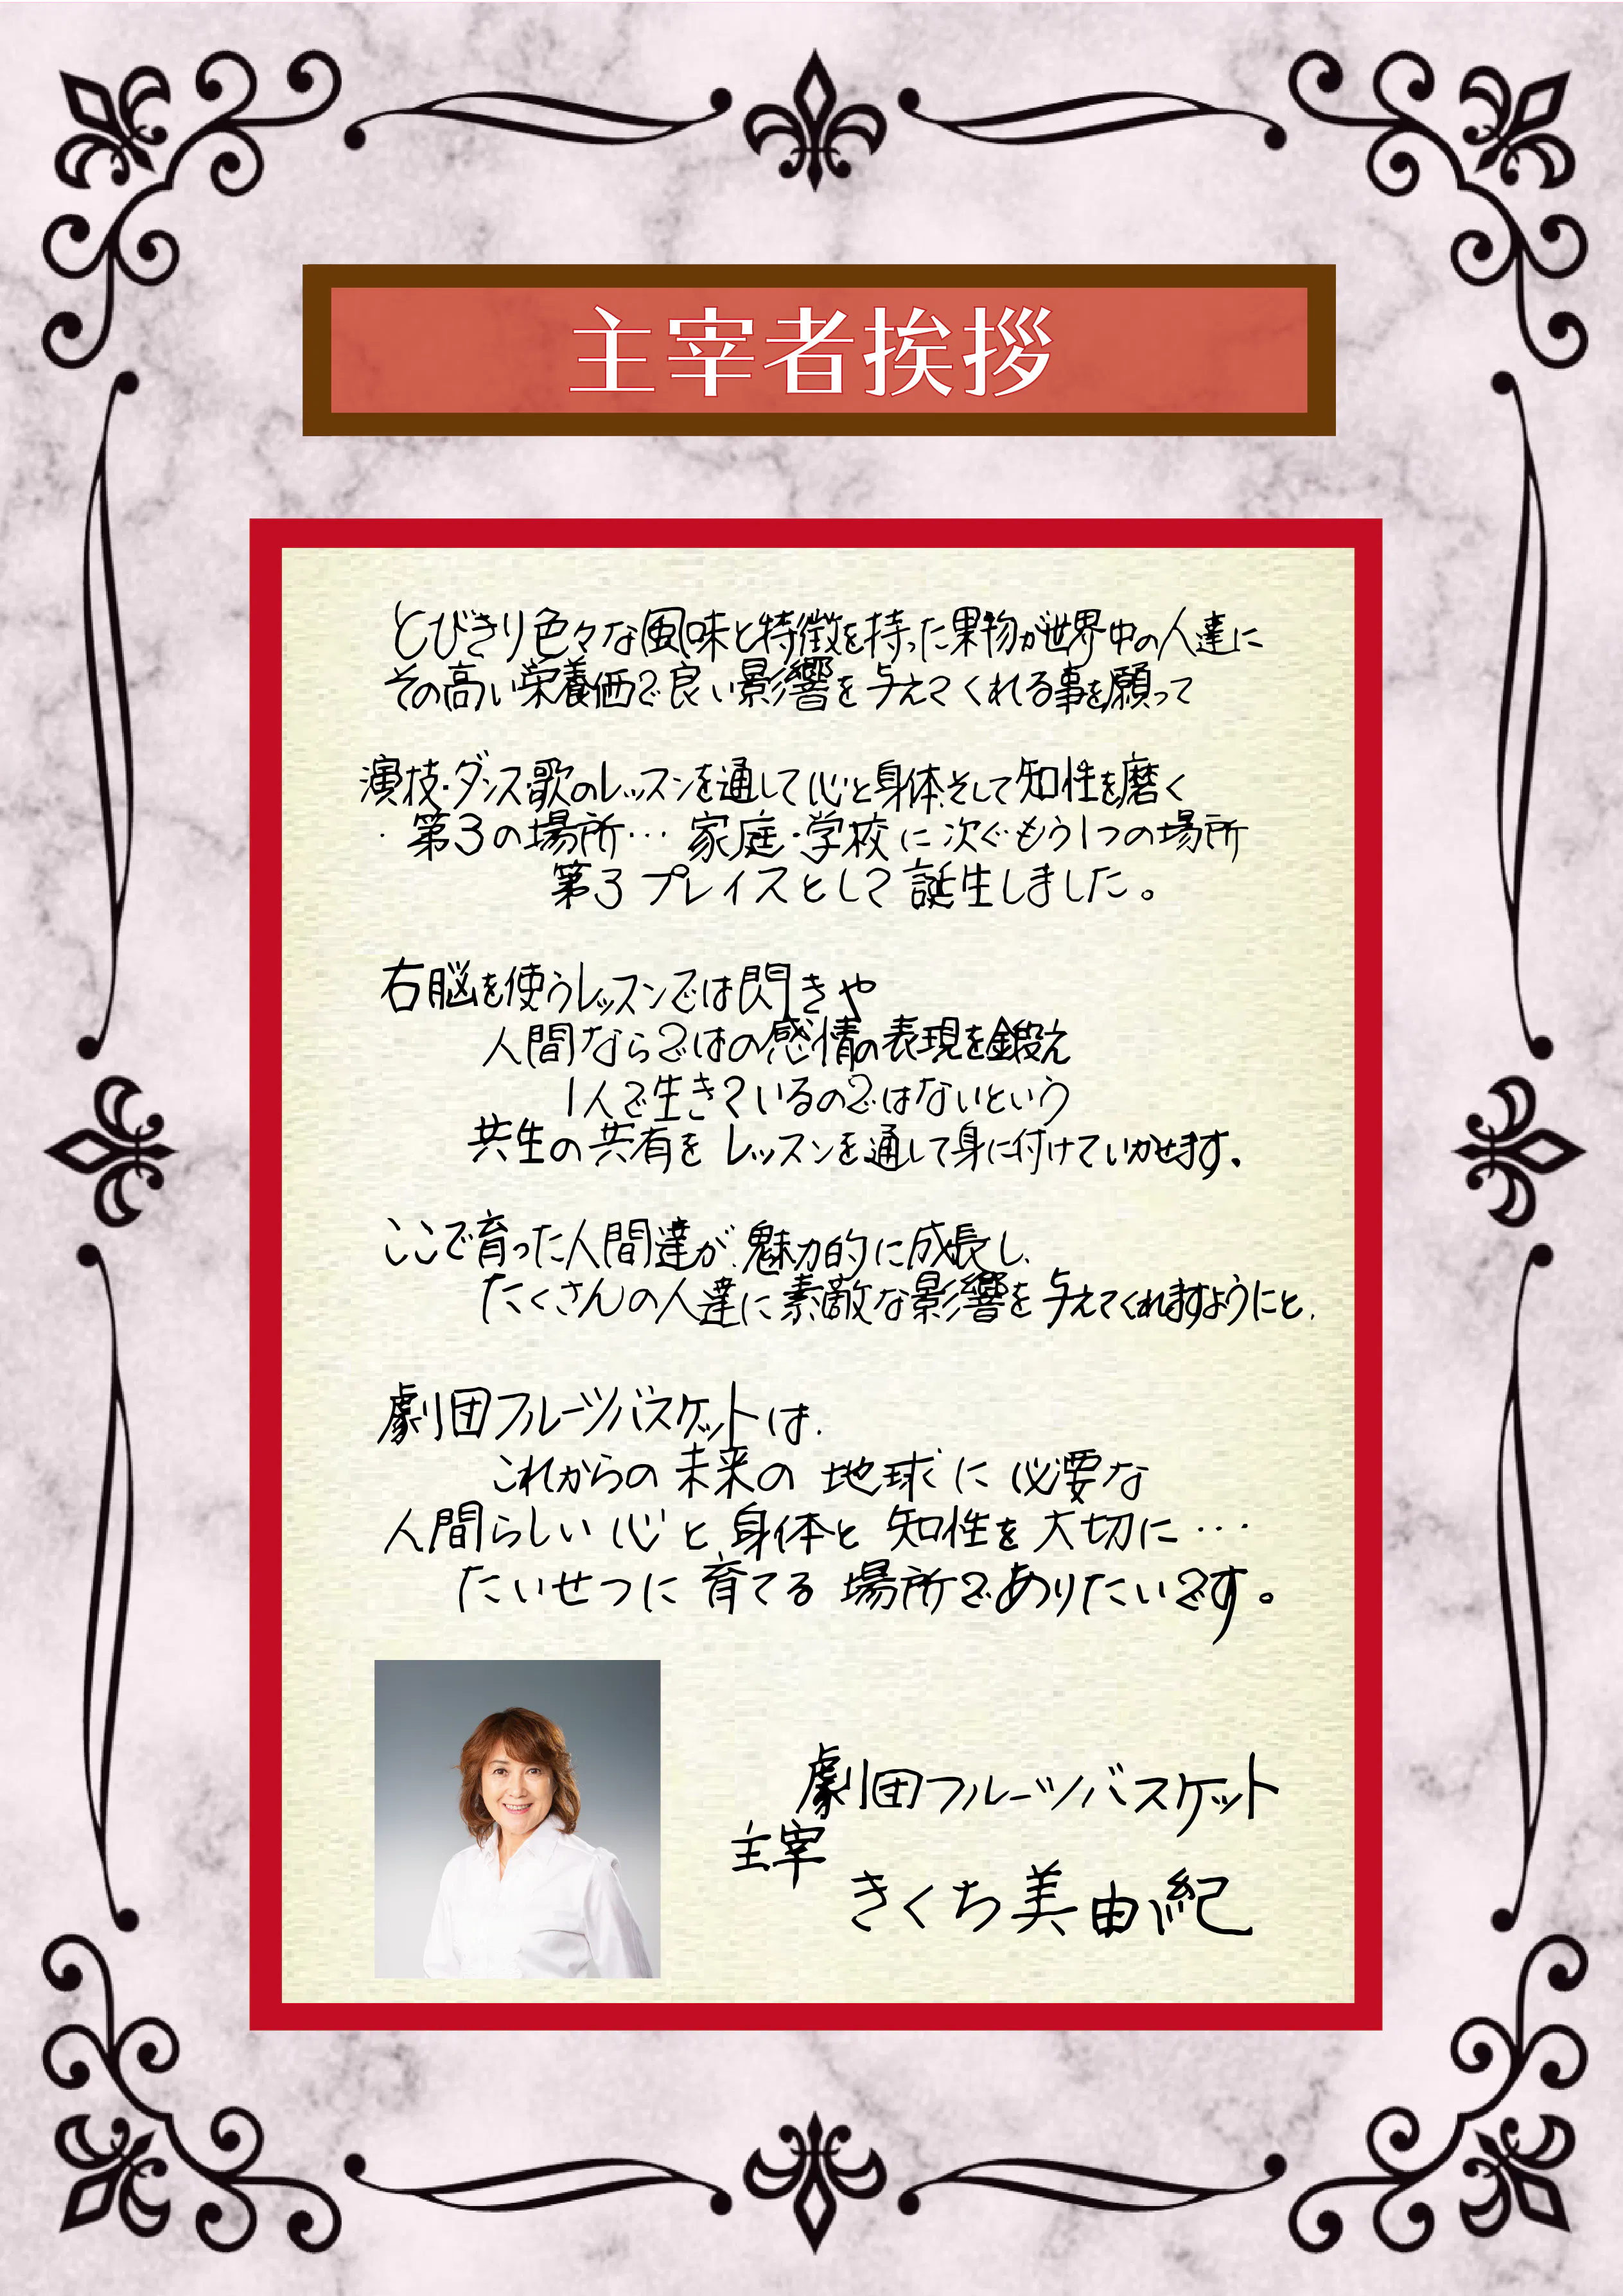 主宰者挨拶
とびきり色々な風味と特徴を持った果物が世界中の人達に
その高い栄養価で良い影響を与えてくれる事を願って
演技・ダンス・歌のレッスンを通して心と身体、そして知性を磨く
・第3の場所… 家庭・学校に次ぐもう1つの場所
第3プレイスとして誕生しました。
右脳を使うレッスンでは閃きや
人間ならではの感情の表現を鍛え
1人で生きているのではないという
共生の共有をレッスンを通して身に付けていかせます。
ここで育った人間達が、魅力的に成長し、
たくさんの人達に素敵な影響を与えてくれますようにと、
劇団フルーツバスケットは、
これからの未来の地球に必要な
人間らしい心と、身体と知性を大切に…
たいせつに育てる場所でありたいです。
劇団フルーツバスケット
主宰
きくち美由紀